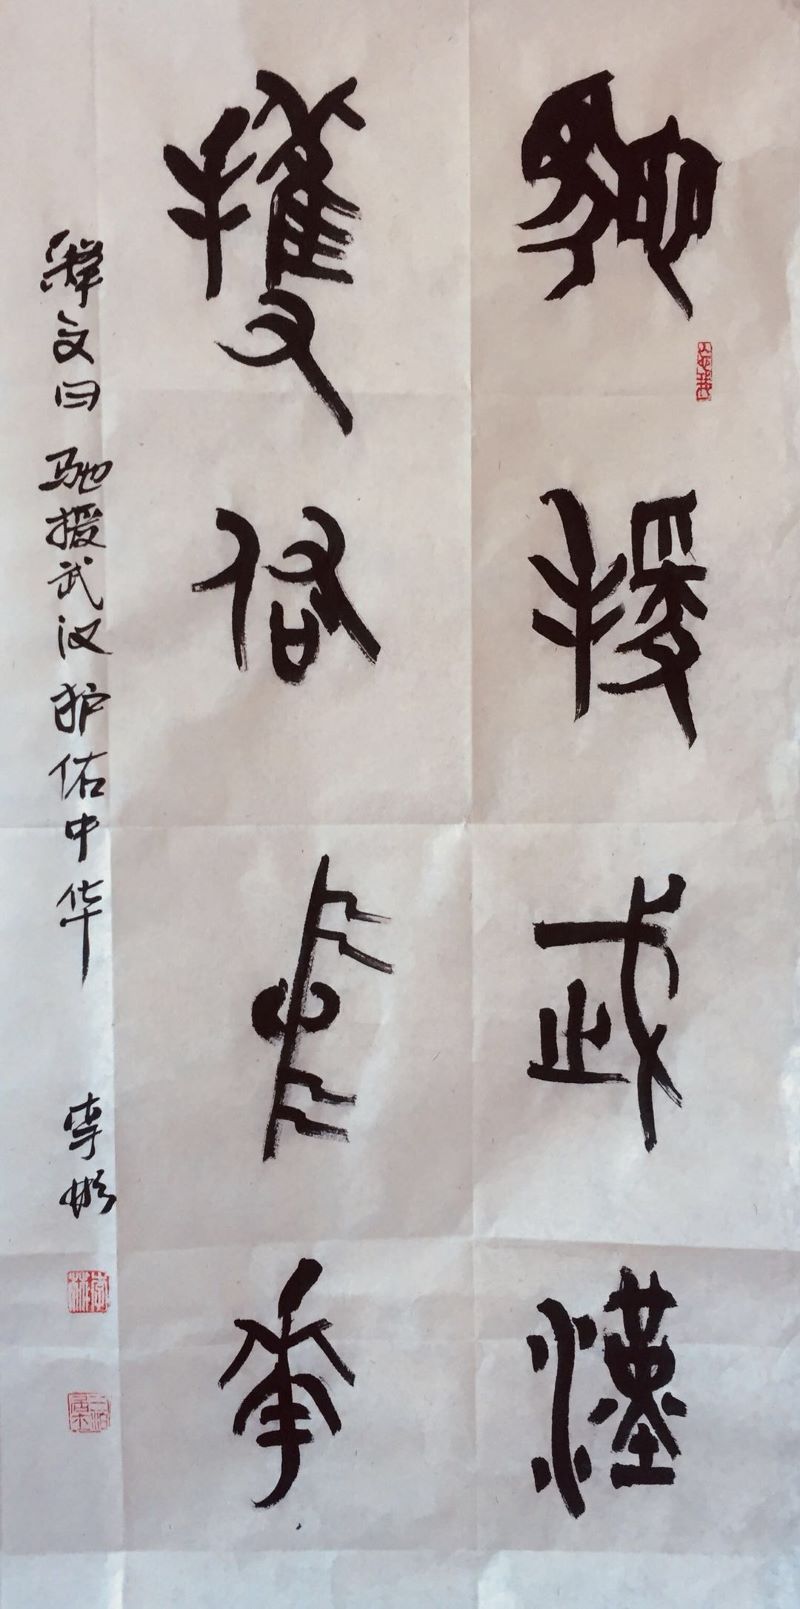 馳援武漢
護佑中華
释文曰 驰援武汉 护佑中华 李彬